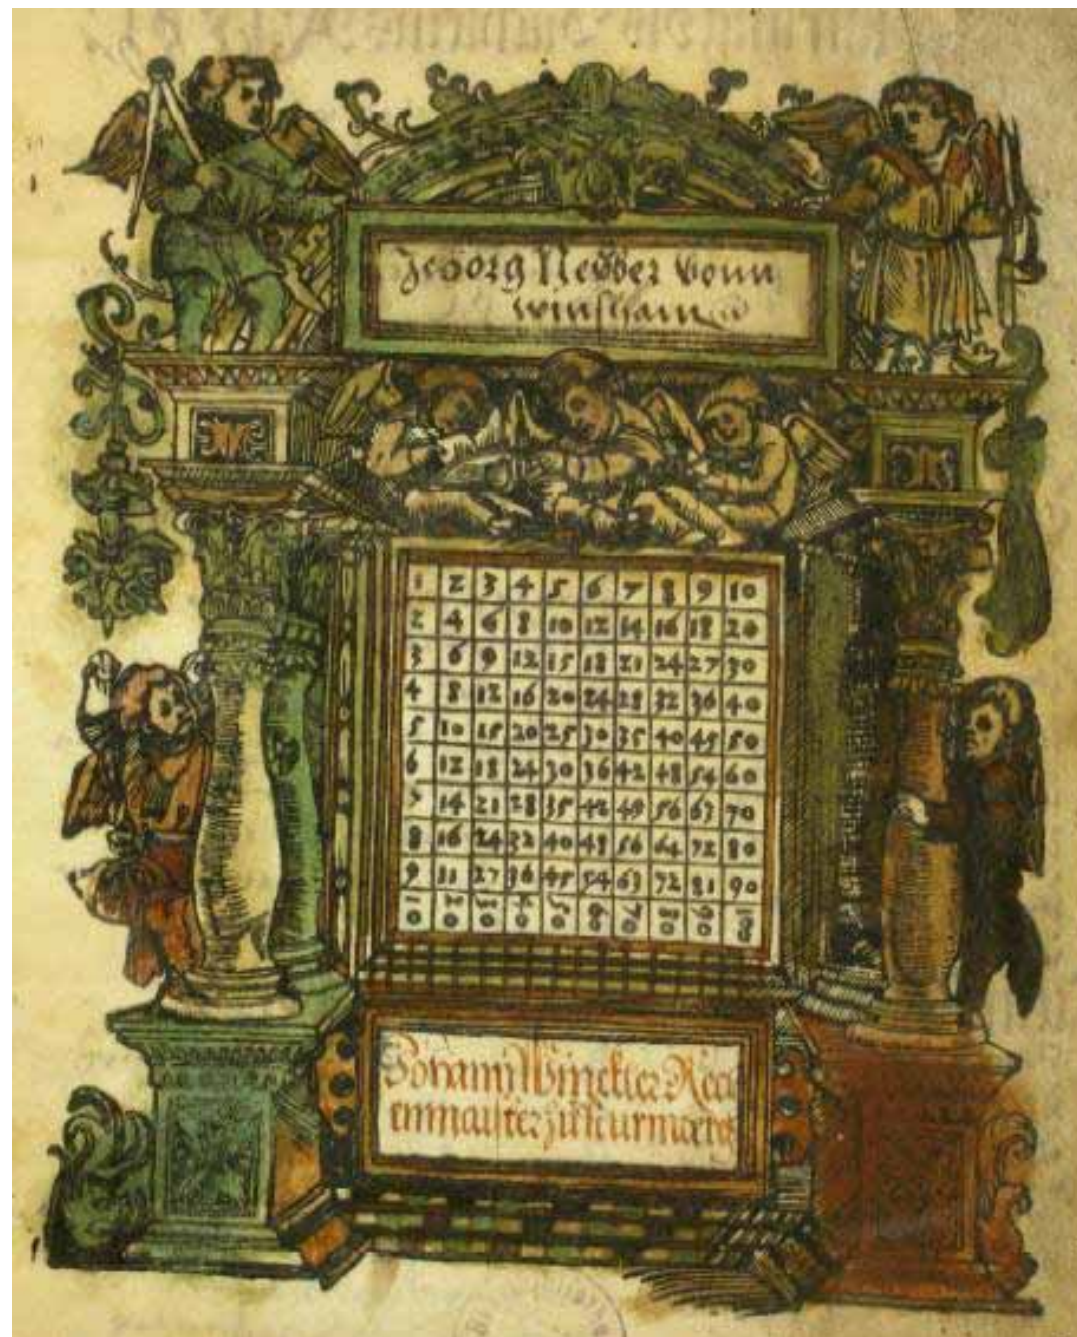 Jeoorg Neyber vonn
winshaim
1 2 3 4 5 6 7 8 9 10
2 4 6 8 10 12 14 16 18 20
3 6 9 12 15 18 21 24 27 30
4 8 12 16 20 24 28 32 36 40
5 10 15 20 25 30 35 40 45 50
6 12 18 24 30 36 42 48 54 60
7 14 21 28 35 42 49 56 63 70
8 16 24 32 40 48 56 64 72 80
9 11 27 36 45 54 63 72 81 90
Johann Winckler Rech
enmaister zu Nurmberg